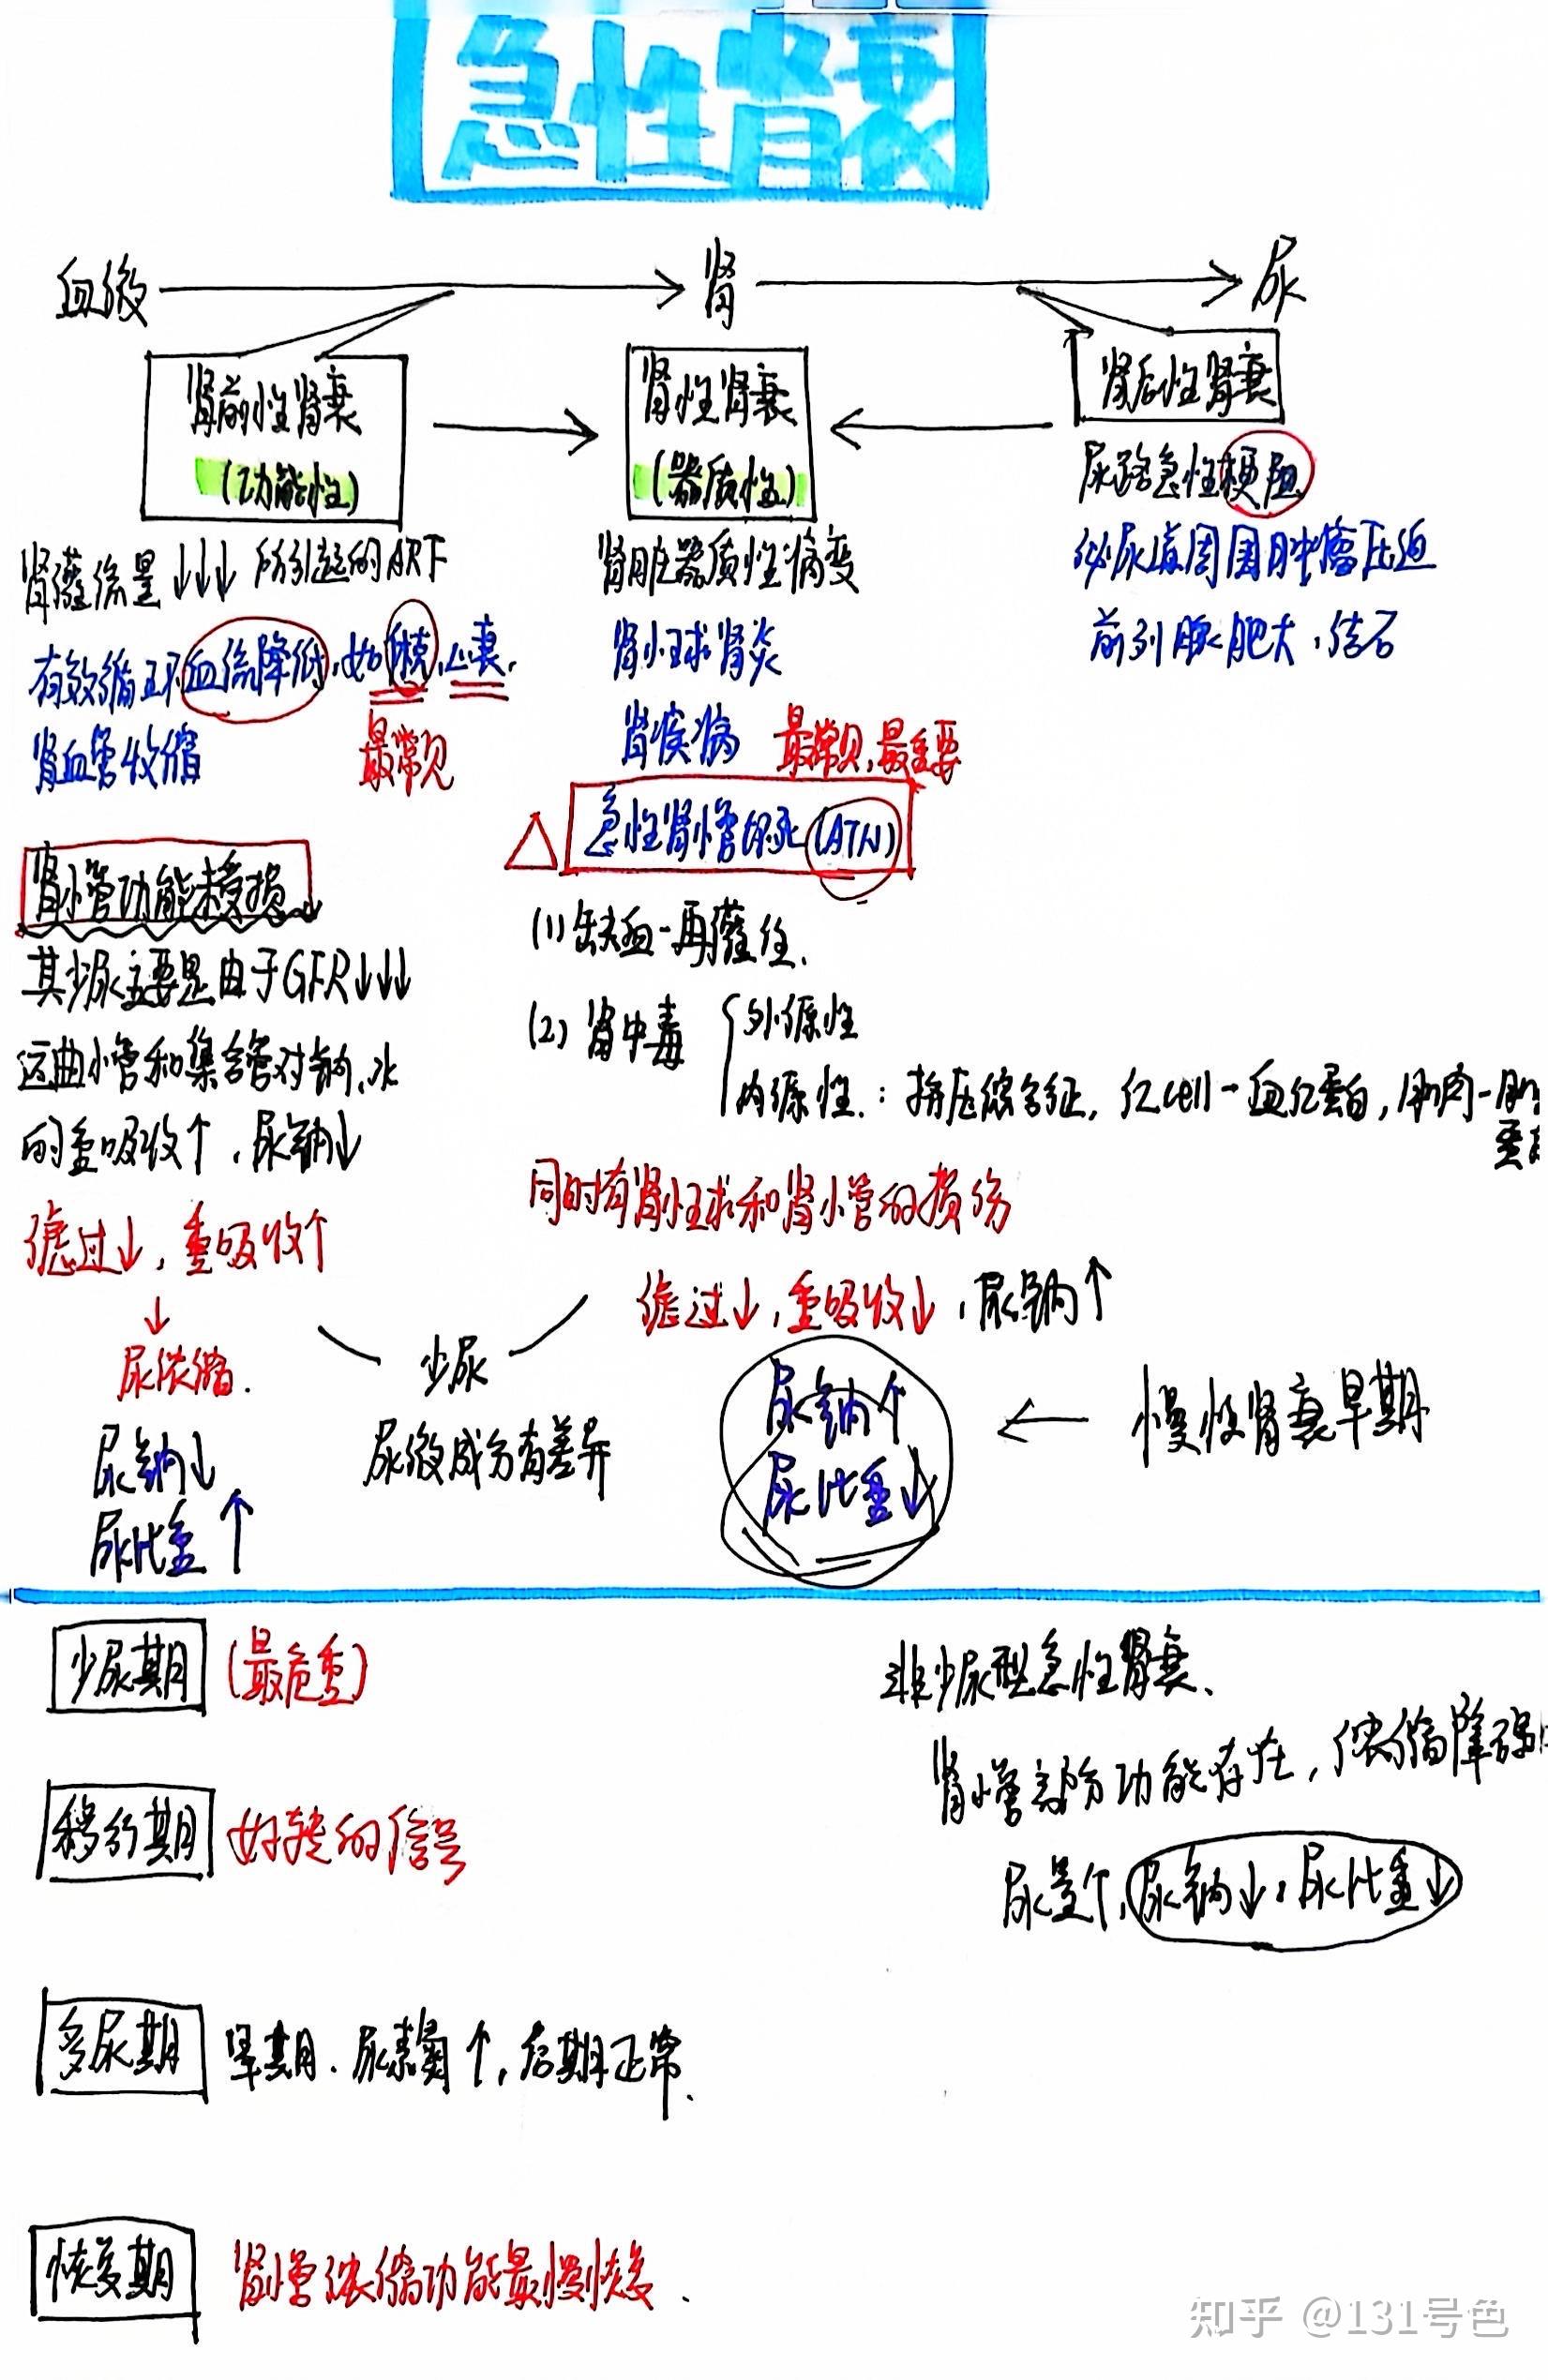 急性肾衰
血液 肾 尿
肾前性肾衰
(功能性)
肾灌流量↓↓↓所引起的ARF
有效循环血流降低,如休克,心衰.
肾血管收缩
最常见
肾小管功能未受损
其少尿主要是由于GFR↓↓↓
远曲小管和集合管对钠、水
的重吸收↑,尿钠↓
滤过↓,重吸收↑
↓
尿浓缩.
尿钠↓
尿比重↑
肾性肾衰
(器质性)
肾脏器质性病变
肾小球肾炎
肾疾病 最常见,最重要
△ 急性肾小管坏死(ATN)
(1) 缺血-再灌注.
(2) 肾中毒
外源性
内源性.:挤压综合征,红cell-血红蛋白,肌肉-肌
同时有肾小球和肾小管的损伤
滤过↓,重吸收↓,尿钠↑
少尿
尿液成分有差异
尿钠↑
尿比重↓
← 慢性肾衰早期
肾后性肾衰
尿路急性梗阻
泌尿道周围肿瘤压迫
前列腺肥大,结石
少尿期 (最危重)
移行期 好转的信号
多尿期 早期.尿素氮↑,后期正常.
恢复期 肾小管浓缩功能最慢恢复.
非少尿型急性肾衰、
肾小管部分功能存在,浓缩障碍
尿量↑,尿钠↓,尿比重↓
知乎 @131号色